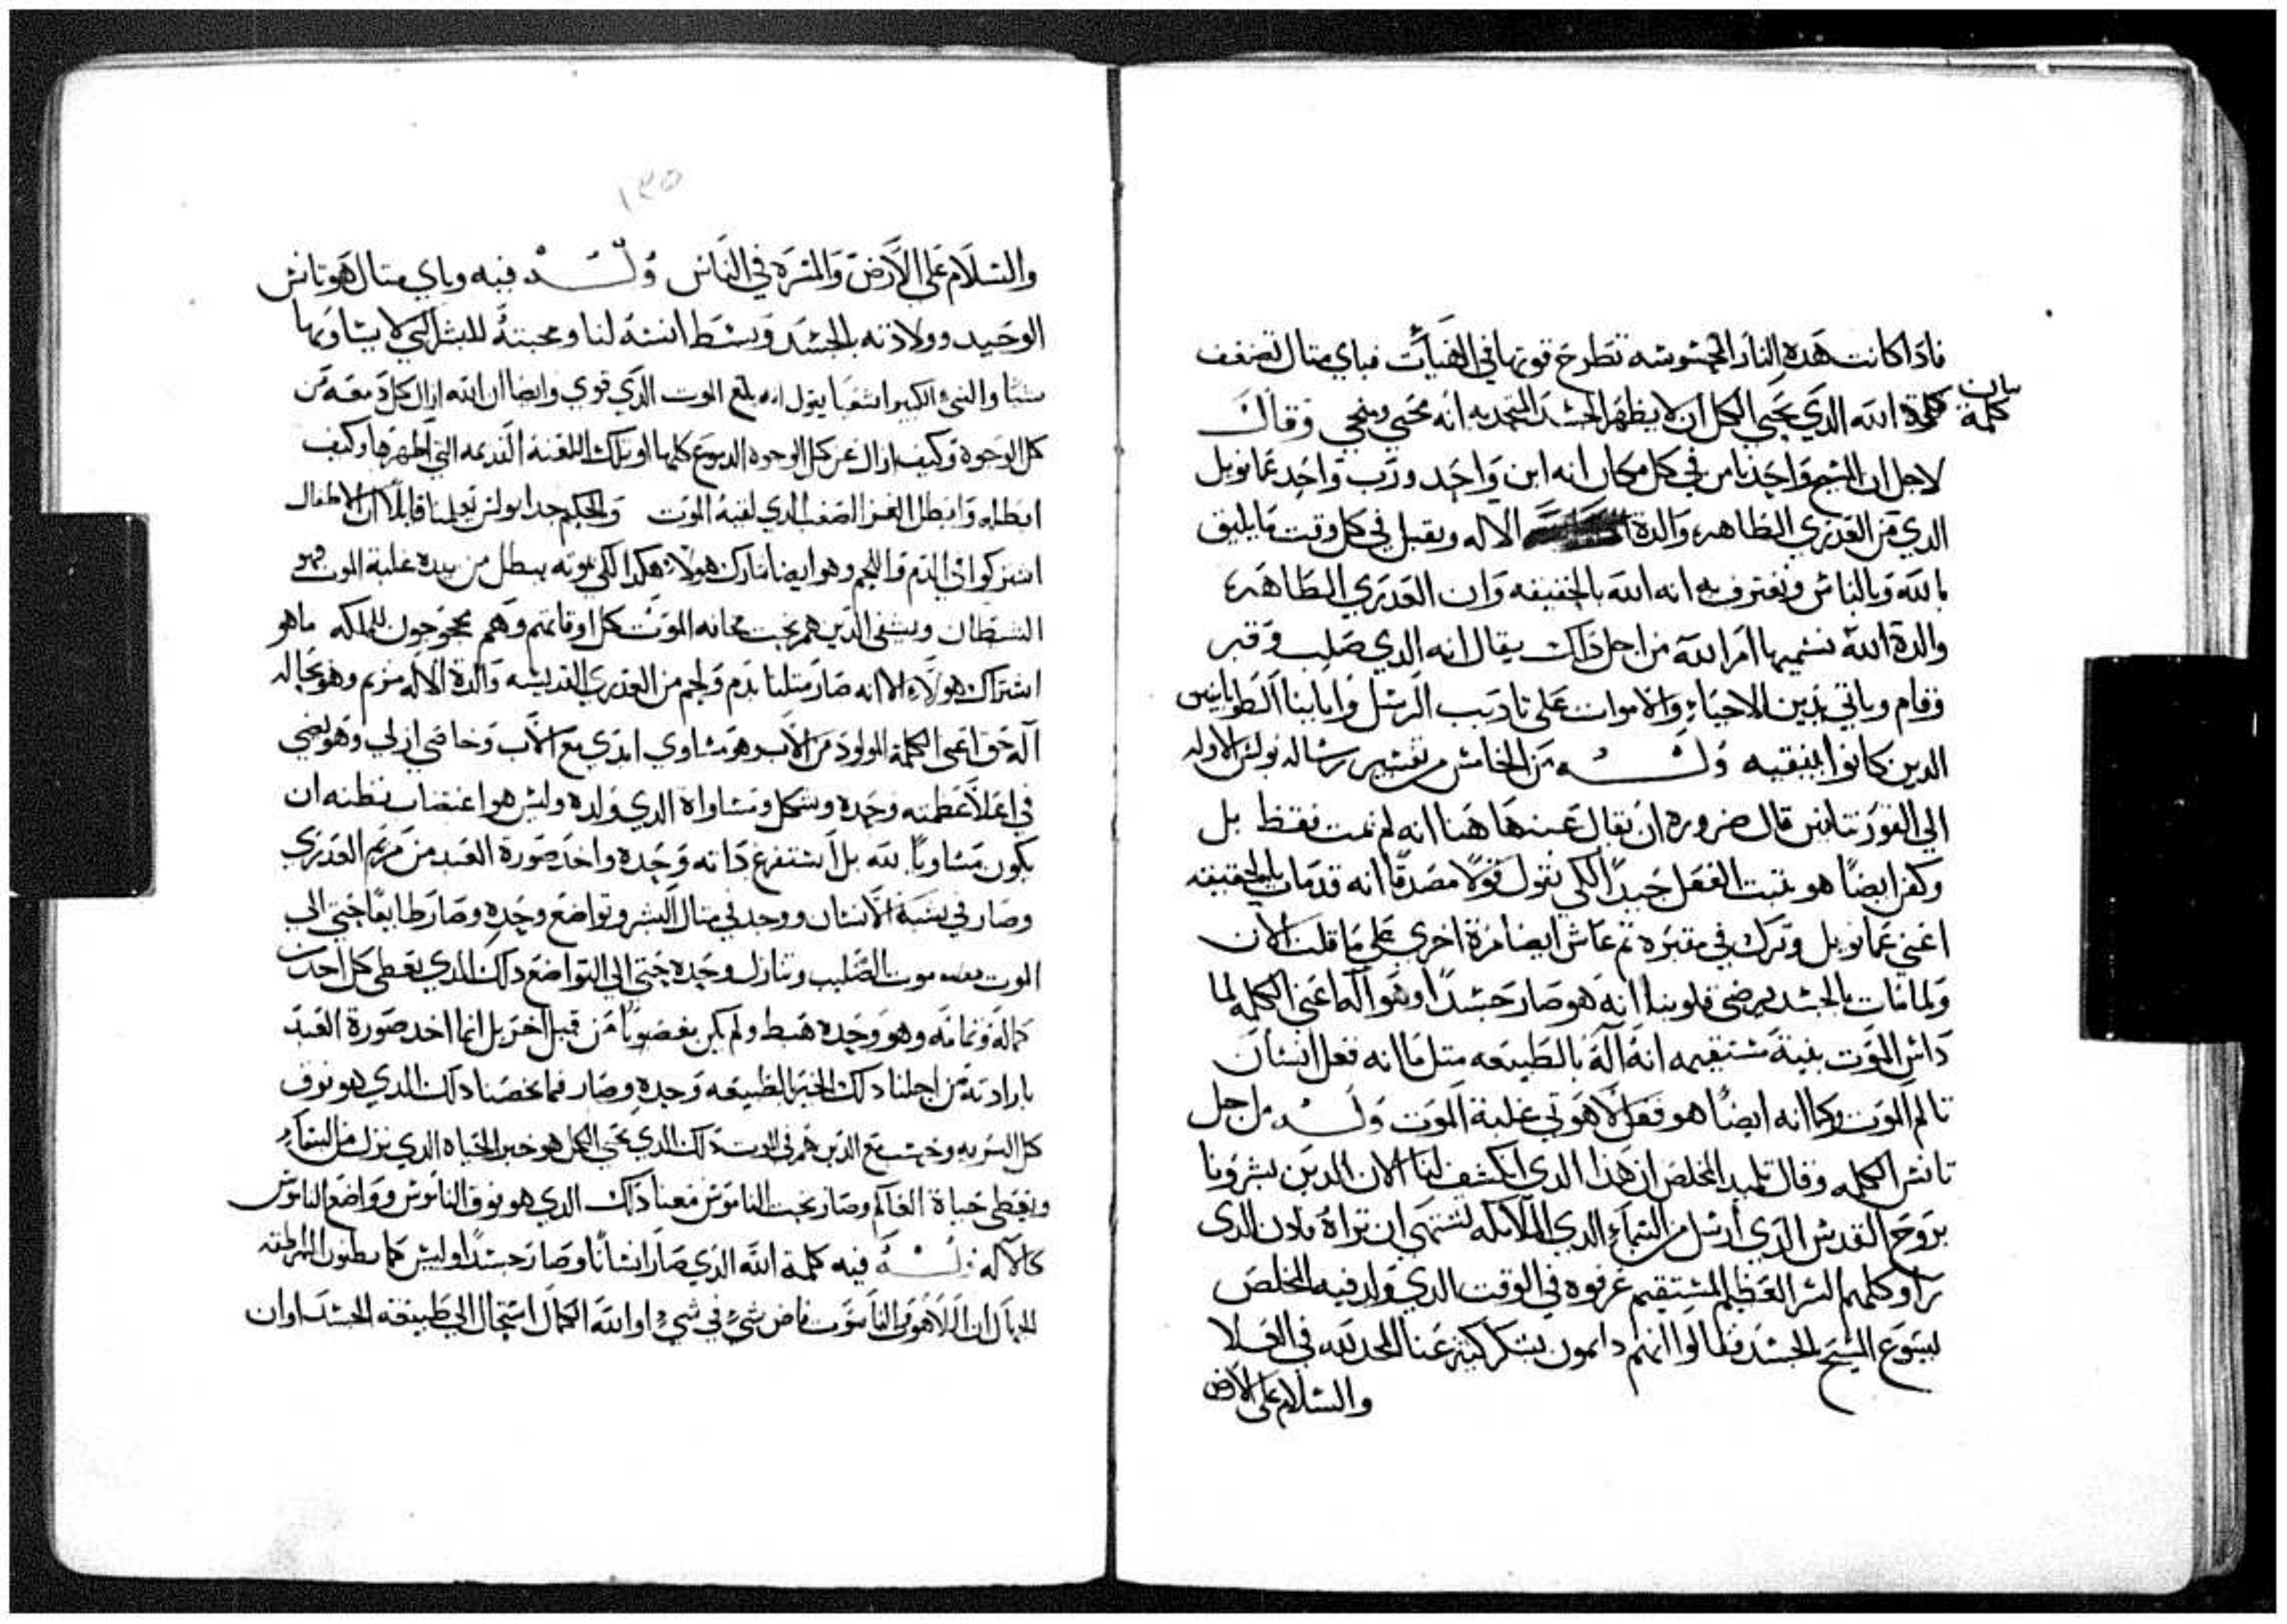 فاذا كانت هذه النار المحسوسه تطرح قوتها في الهيات فباي متال تضعف
كلمة الله الذي يحيي الكل ان لا يظهر الجسد المتحد به انه محيي ومنجي وقال
بيان كلمة
لاجل ان المسيح واحد نامن في كل مكان انه ابن واحد ورب واحد عمانويل
الدي من العدري الطاهره والدة الاله ونقبل في كل وقت ما يليق
بالله وبالناس ونعترف به انه الله بالحقيقه وان العدري الطاهره
والدة الله نسميها ام الله من اجل ذاك يقال انه الدي صلب وقبر
وقام وياتي يدين الاحياء والاموات على تاديب الرسل وابابنا الطوبانيين
الدين كانوا بيقبه وله من الخامس من تفسير رساله بولس الاوله
الي القورنتانيين قال ضروره ان يقال عنه هاهنا انه لم يمت فقط بل
وكفن ايضًا هو يتبت العقل جيدًا لكي نقول قولًا مصدقًا انه قد مات بالحقيقه
اعني عمانويل وترك في مقبره تم عاش ايضا مرة اخري على ما قلت الان
ولما مات بالجسد يرضي قلوبنا انه هو صار جسدًا وهو اله اعني الكلمه لما
داس الموت بقوة مستقيمه انه اله بالطبيعه متل ما انه فعل انسان
تالم الموت وكما انه ايضًا هو فعل لاهوتي غلبة الموت وله من اجل
تانس الكلمه وقال تلميد المخلص ان هذا الدي انكشف لنا الان الدين بشرونا
بروح القدس الدي ارسل من السماء الدي الملايكه تشتهي ان تراه بادن الدي
راو كلهم السر العظيم المستقيم عرفوه في الوقت الدي ولد فيه المخلص
يسوع المسيح بالجسد فقالوا انهم دايمون بشكر كتير عنا المجد لله في العلا
والسلام على الارض
١٣٥
والسلام على الارض والمسره في الناس وله فيه وباي متال هو تانس
الوحيد وولادته بالجسد وبسط انسه لنا ومحبته للبشر التي لا يساويها
شيا والنبي الكبير اشعيا يقول انه بلع الموت الدي قوي وايضا ان الله ازال كل دمعه من
كل الوجوه وكيف ازال عن كل الوجوه الدموع كلها او تلك اللعنة القديمه التي اظهرها وكيف
ابطله وابطل العز الصعب الدي لغلبة الموت والحكيم جدا بولس يعلمنا قايلًا ان الاطفال
اشتركوا في الدم واللحم وهو ايضا شارك هولاء هكدا لكي بموته يبطل من بيده غلبة الموت وهو
الشيطان ويشفي الدين هم تحت مخافه الموت كل اوقاتهم وهم محجوجون للملكه ما هو
اشتراك هولاء الا انه صار متلنا بدم ولحم من العدري القديسه والدة الاله مريم وهو بحاله
اله حق اعني الكلمة المولود من الاب وهو مساوي ابدي مع الاب وخاضي ازلي وهو يضي
في اعلا عظمته وحده وشكل ومساواة الدي ولده وليس هو اغتصاب نظنه ان
يكون مساويًا لله بل استفرغ داته وحده واخد صورة العبد من مريم العدري
وصار في شبه الانسان ووجد في متال البشر وتواضع وحده وصار طايعًا حتي الي
الموت بعد موت الصليب وتنازل وحده حتي الي التواضع داك الدي يعطي كل احد من
كماله وتمامه وهو وحده هبط ولم يكن بغصوبًا من قبل اخر بل انما اخد صورة العبد
بارادته من اجلنا داك الحر بالطبيعه وحده وصار فما يخصنا داك الدي هو فوق
كل البريه وحسب مع الدين هم في الموت داك الدي يحيي الكل هو خبز الحياه الدي نزل من السماء
ويعطي حياة العالم وصار تحت الناموس معنا داك الدي هو فوق الناموس وواضع الناموس
كالاله وله فيه كلمة الله الدي صار انسانًا وصار جسدًا وليس كما يظنون الهراطقه
الجهال ان اللاهوت والناسوت فاض شيء في شيء او الله الكمال استحال الي طبيعة الجسد او ان